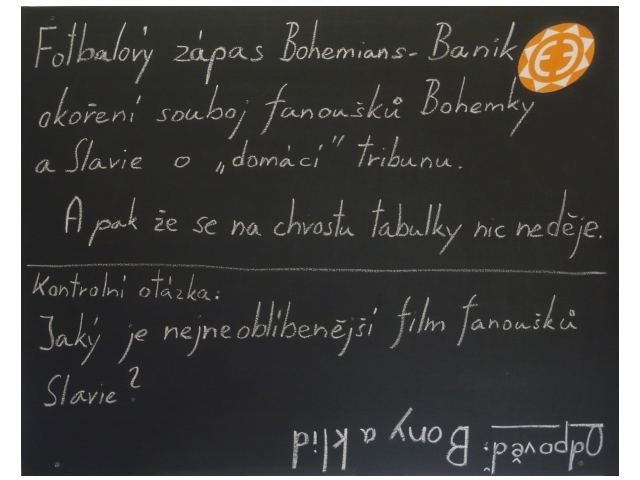 Fotbalový zápas Bohemians - Baník
okoření souboj fanoušků Bohemky
a Slavie o „domácí" tribunu.
A pak že se na chrostu tabulky nic neděje.
Kontrolní otázka:
Jaký je nejneoblíbenější film fanoušků
Slavie?
Odpověď: Bony a klid